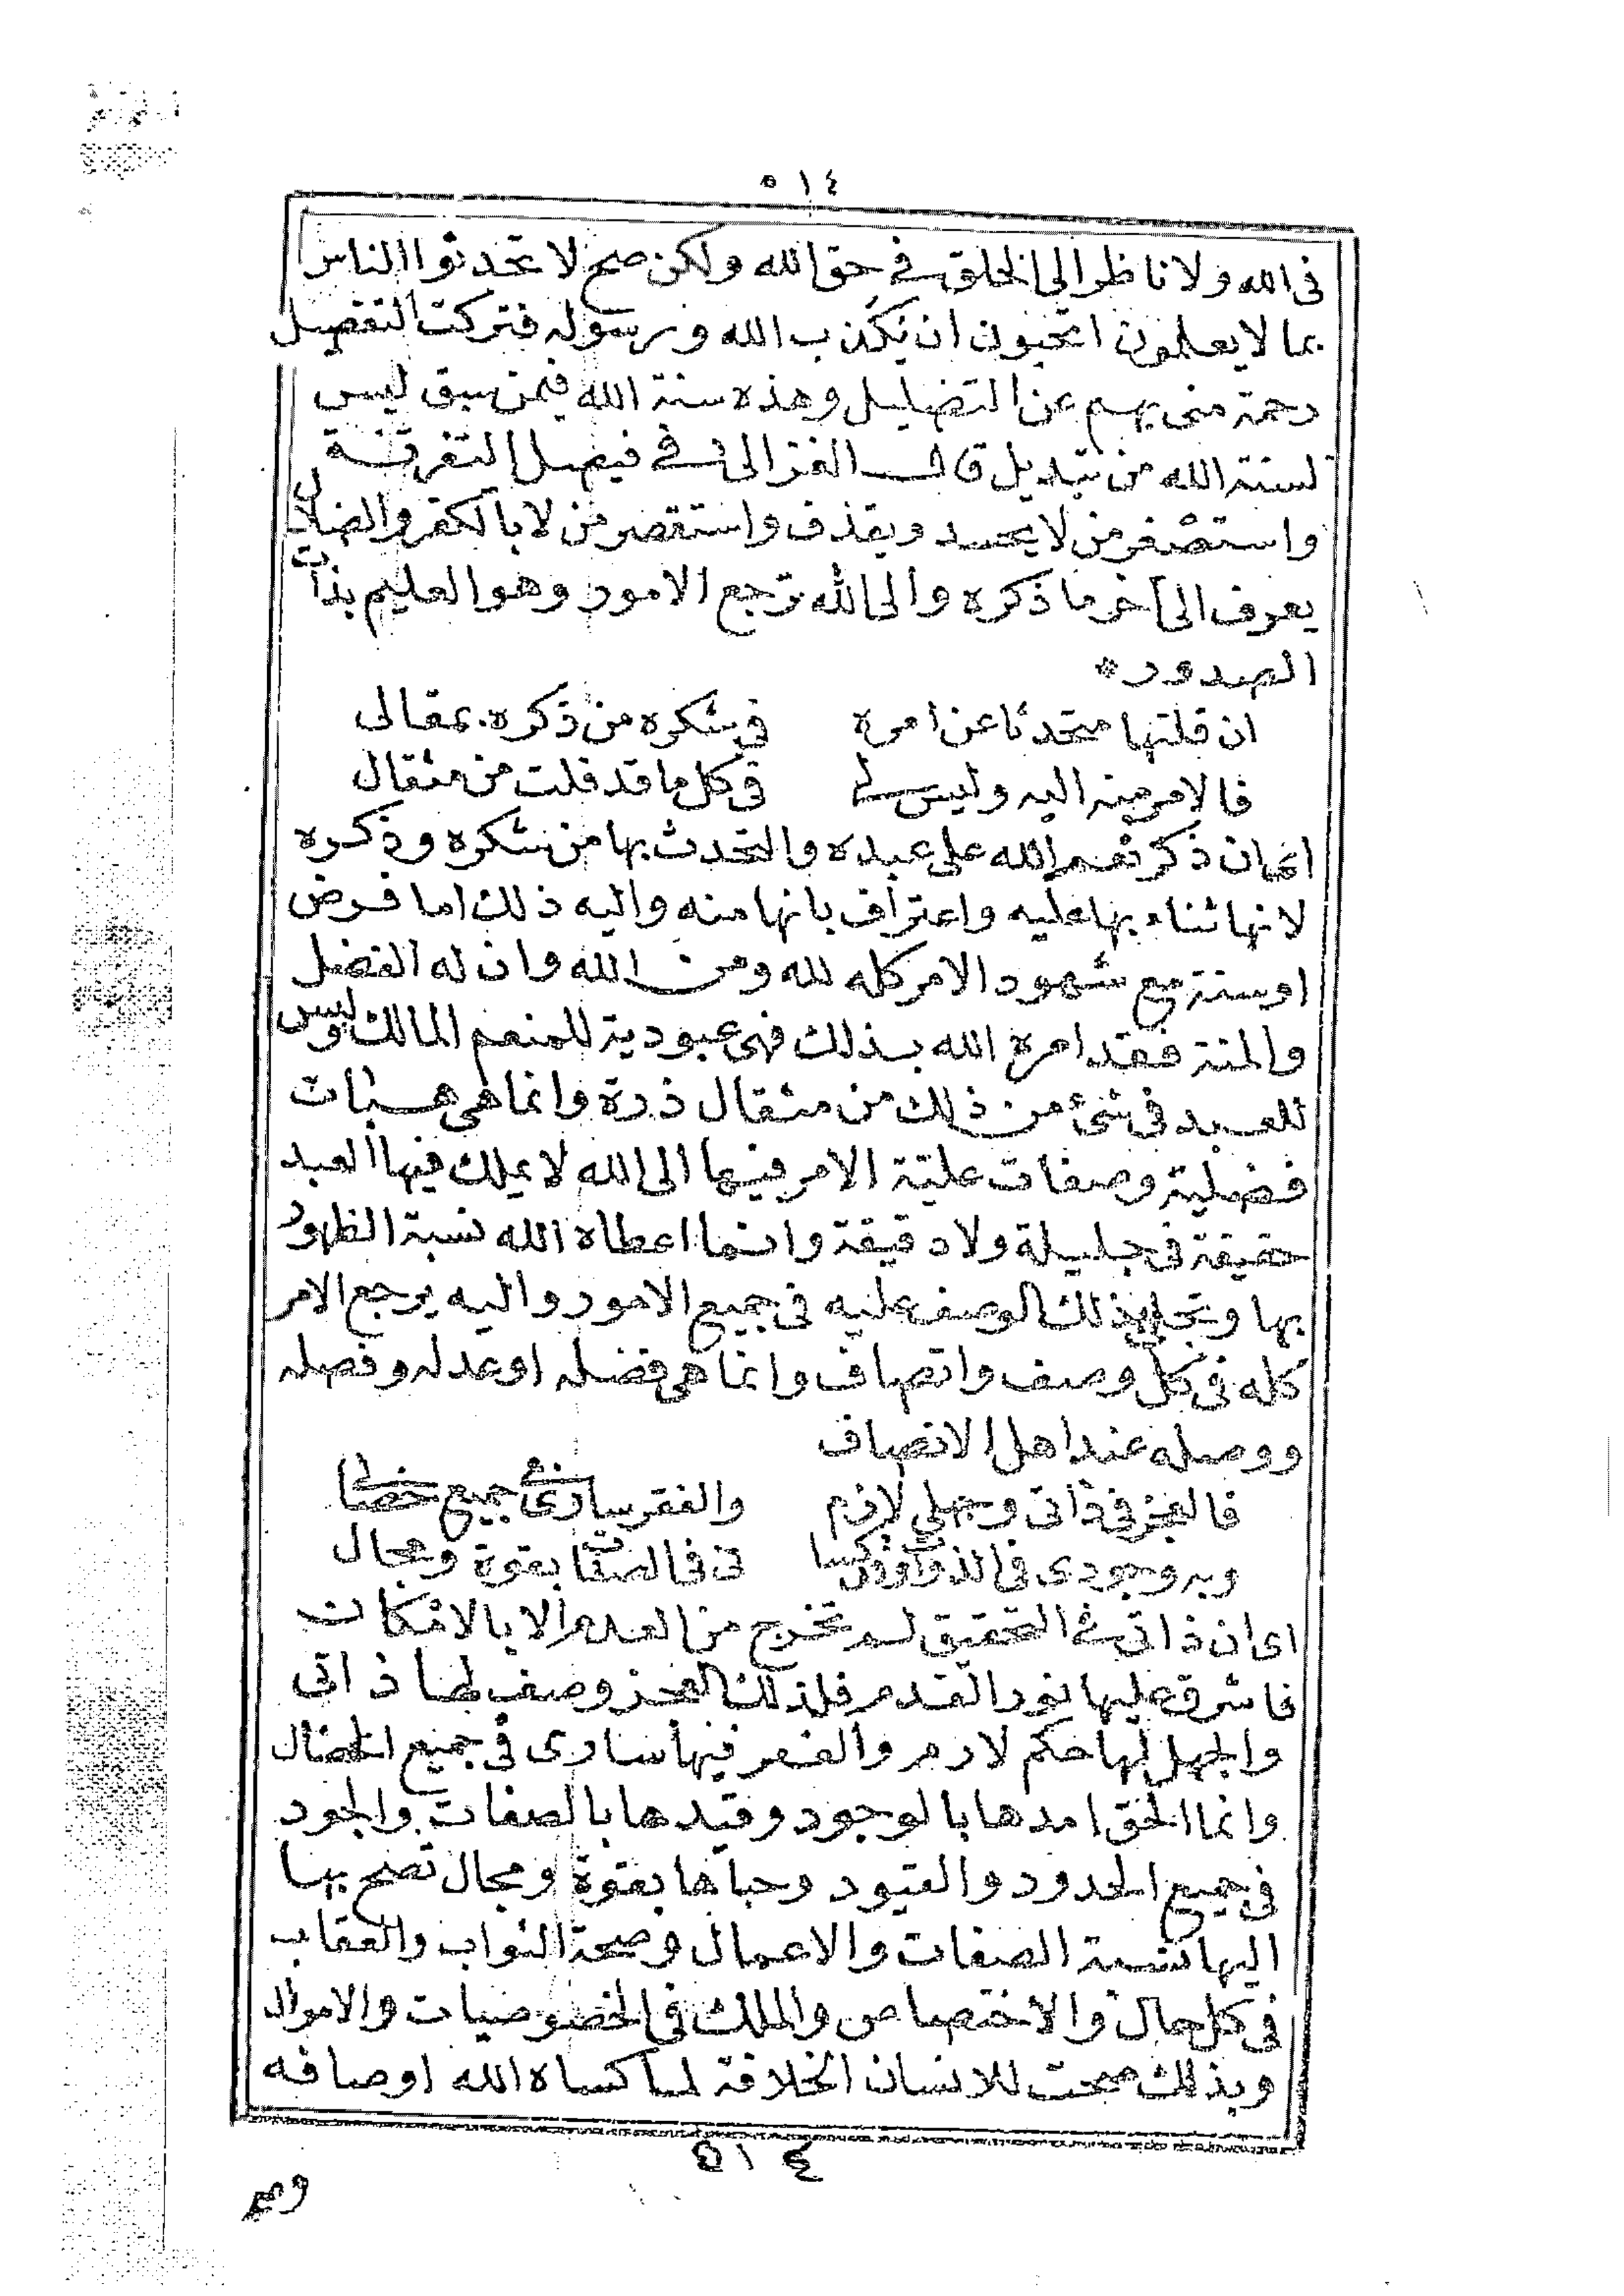 ٥١٤
فى الله ولا ناظرا الى الخلق في حق الله ولكن صح لا تحدثوا الناس
بما لا يعلمون اتحبون ان يكذب الله ورسوله فتركت التفصيل
رحمة منى بهم عن التضليل وهذه سنة الله فيمن سبق ليس
لسنة الله من تبديل قال الغزالى في فيصل التفرقة
واستصغر من لا يحسد ويقذف واستقصر من لا بالكفر والضلال
يعرف الى آخر ما ذكره والى الله ترجع الامور وهو العليم بذات
الصدور *
ان قلتها متحدثا عن امره في شكره من ذكره بمقالى
فالامر منه اليه وليس لي في كل ما قد قلت من مثقال
اى ان ذكر نعم الله على عبده والتحدث بها من شكره وذكره
لانها ثناء بها عليه واعتراف بانها منه واليه ذلك اما فرض
او سنة مع شهود الامر كله لله ومن الله وان له الفضل
والمنة فقد امره الله بذلك فهى عبودية للمنعم المالك وليس
للعبد فى شئ من ذلك من مثقال ذرة وانما هى هبات
فضلية وصفات علية الامر فيها الى الله لا يملك فيها العبد
حقيقة فى جليلة ولا دقيقة وانما اعطاه الله نسبة الظهور
بها وتجلى بذلك الوصف عليه فى جميع الامور واليه يرجع الامر
كله فى كل وصف واتصاف وانما هى فضله او عدله وفصله
ووصله عند اهل الانصاف
فالعجز فى ذاتى وجهلي لازم والفقر سارى في جميع خصالي
وبه وجودى فى الذوات بقوة ومجال
اى ان ذاتى في التحقيق لم تخرج من العدم الا بالامكان
فاشرق عليها نور القدم فلذلك العجز وصف لها ذاتى
والجهل لها حكم لازم والفقر فيها سارى فى جميع الخصال
وانما الحق امدها بالوجود وقيدها بالصفات والجود
فى جميع الحدود والقيود وحباها بقوة ومجال تصح بها
اليها نسبة الصفات والاعمال وصحة الثواب والعقاب
فى كل حال والاختصاص والملك فى الخصوصيات والاموال
وبذلك صحت للانسان الخلافة لما كساه الله اوصافه
٥١٤